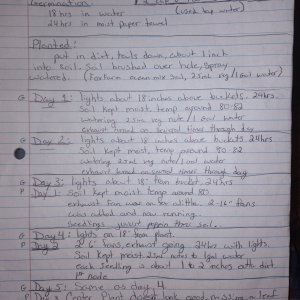 Germination:
18 hrs in water (used tap water)
24 hrs in moist paper towel
Planted:
put in dirt, tails down, about 1 inch
into soil. Soil brushed over hole, spray
watered. (Foxfarm ocean mix Soil, 2.5mL veg/1 Gal water)
G Day 1: lights about 18 inches above buckets. 24hrs.
Soil Kept moist, temp around 80-82
watering 2.5mL veg note/1 Gal water
exhaust turned on several times through day
G Day 2: lights about 18 inches above buckets 24hrs
Soil kept moist, temp around 80-82
watering 2.5mL veg note/1 Gal water
exhaust turned on several times through day
G Day 3: lights about 18" from bucket, 24hrs
P Day 1: Soil kept moist temp around 80.
exhaust fan was on for a little. 2-16" fans
were added and now running.
Seedlings just poppin thru soil.
G Day 4: lights on 18" from plant.
P Day 2 2 6" fans, exhaust going 24hr with lights.
Soil Kept moist 2.5mL notes to 1gal water
each Seedling is about 1 to 2 inches with dirt
1st node
G Day 5: Same as day 4
P Day 3 Center Plant doesn't look good missing a leaf